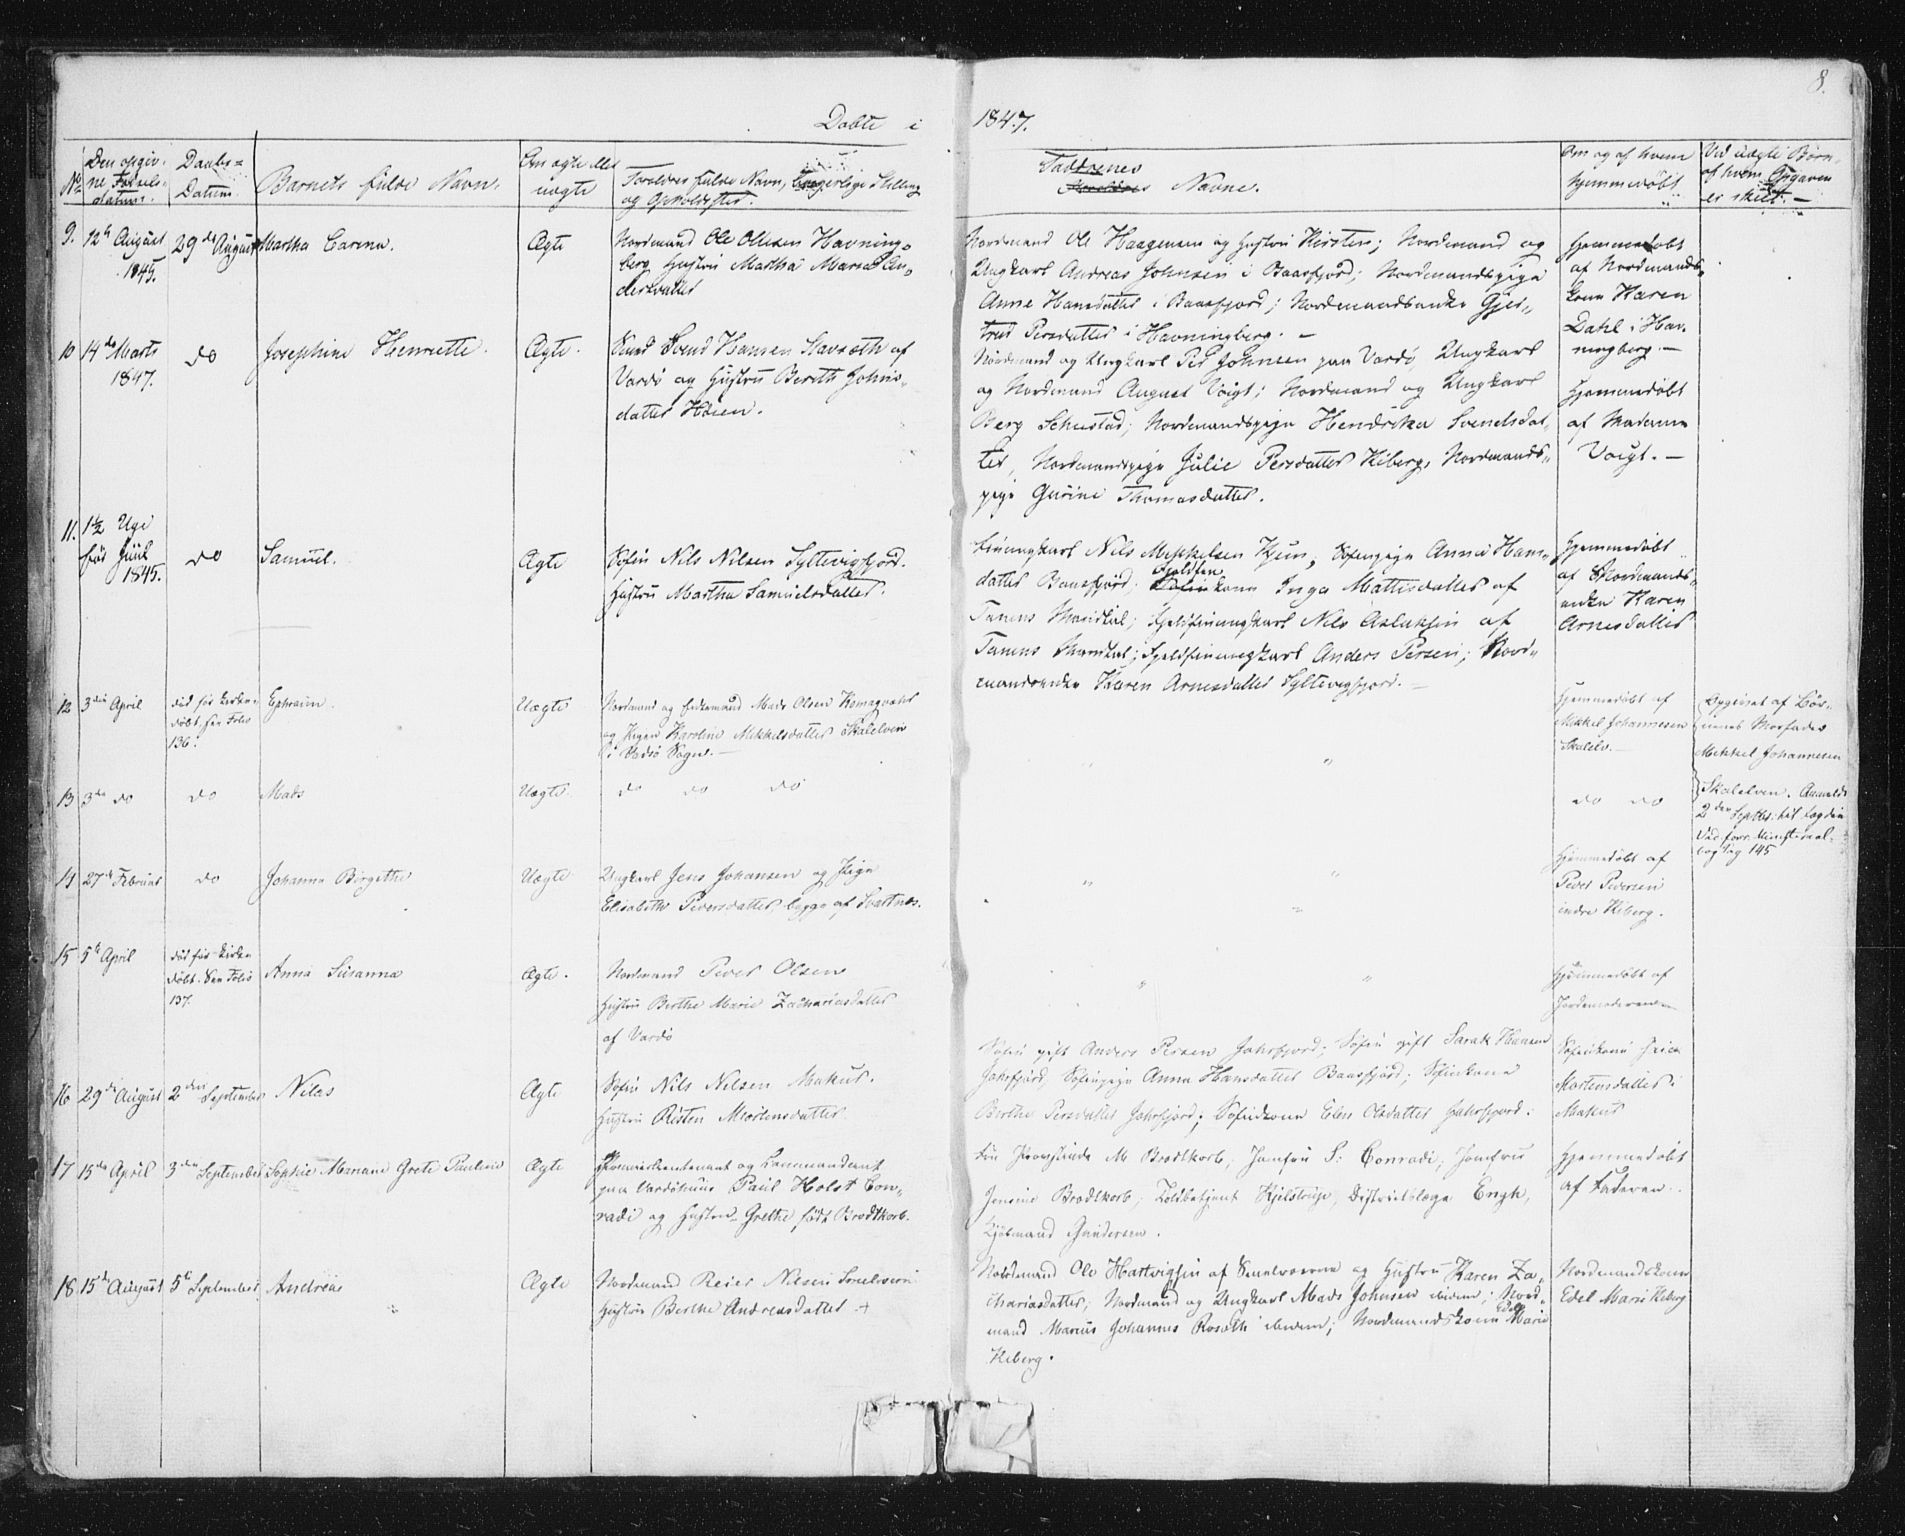 8.
Døbte i 1847.
No
Den opgiv-
ne Fødsels-
datum.
Daabs-
Datum
Barnets fulde Navn.
Om ægte eller
uægte
Forældres fulde Navn, borgerlige Stilling
og Opholdssted.
Faddrenes
Navne.
Om og af hvem
hjemmedøbt
Ved uægte Børn,
af hvem Opgaven
er skeet. —
9.
12te August
1845.
29de August
Martha Carina.
Ægte
Nordmand Ole Ollesen Havning-
berg Hustru Martha Maria An-
dersdatter
Nordmand Ole Haagensen og Hustru Kirsten; Nordmand og
Ungkarl Andreas Johnsen i Baasfjord; Nordmandspige
Anne Hansdatter i Baasfjord; Nordmandsenke Gjer-
trud Persdatter i Havningberg. —
Hjemmedøbt
af Nordmands-
kone Karen
Dahl i Hav-
ningberg. —
10
14de Marts
1847.
do
Josephine Henriette.
Ægte.
Svend Hansen Havsæth af
Vardø og Hustru Bereth Johns-
datter Høien.
Nordmand og Ungkarl Per Johnsen paa Vardø, Ungkarl
og Nordmand August Voigt; Nordmand og Ungkarl
Berg Schustad; Nordmandspige Hendrika Svendsdat-
ter, Nordmandspige Julie Persdatter Kiberg, Nordmands-
pige Gurine Thomasdatter.
Hjemmedøbt
af Madame
Voigt. —
11.
1½ Uge
før Juul
1845.
do
Samuel.
Ægte
Søfin Nils Nilsen Syltevigfjord.
Hustru Martha Samuelsdatter.
Finungkarl Nils Mikkelsen Kjun, Søfinpige Anna Hans-
datter Baasfjord; Fjeldfin
kone Inga Mattisdatter af
Tanens Marktal; Fjeldfinungkarl Nils Aslaksen af
Tanens Marktal; Fjeldfinungkarl Anders Persen; Nord-
mandsenke Karen Arnesdatter Syltevigfjord. —
Hjemmedøbt
af Nordmands-
enke Karen
Arnesdatter
12
3die April
død før kirke-
døbt, see Folio
136.
Ephraim.
Uægte
Nordmand og Enkemand Mads Olsen Komagvær
og Pigen Karoline Mikkelsdatter Skalelven
i Vadsø Sogn. —
"
Hjemmedøbt af
Mikkel Johannesen
Skalelv. —
Opgivet af Bør-
nenes Morfader
Mikkel Johannesen
13
3die do
do
Mads
Uægte
do do do
do do
Skalelven. Anmeldt
2den Septbr.
pag 145
14
27de Februar
do
Johanna Birgithe
Uægte
Ungkarl Jens Johansen og Pige
Elisabeth Pedersdatter, begge af Svartnæs.
" "
"
Hjemmedøbt af
Peder Pedersen
indre Kiberg.
15
5te April
død før kirke-
døbt. See Folio
137.
Anna Susanna
Ægte.
Nordmand Peder Olsen
Hustru Berthe Marie Zachariasdatter
af Vardø
" "
Hjemmedøbt af
Jordemoderen —
16
29de August
2den September
Nilas
Ægte
Søfin Nils Nilsen Makur.
Hustru Risten Mortensdatter
Søfin gift Anders Persen Jahrfjord; Søfin gift Sarak Hansen
Jahrfjord, Søfinpige Anna Hansdatter Baasfjord; Søfinkone
Berthe Persdatter Jahrfjord; Søfinkone Elen Olsdatter Jahrfjord.
Søfinkone
Mortensdatter i
Makur
17
15de April
3die September
Sophie Mariane Grete Pauline
Ægte
Premierlieutenant og Commandant
paa Vardøhuus Paul Holst Con-
radi og Hustru Grethe født Brodtkorb.
M Brodtkorb; Jomfru S: Conradi; Jomfru
Jensine Brodtkorb; Toldbetjent Kjelstrup, Districtslæge Engh,
Kjøbmand Gundersen.
Hjemmedøbt
af Faderen.
18.
15de August
5te September
Andreas
Ægte
Nordmand Reier Nilsen Smelveren
Hustru Berthe Andreasdatter +
Nordmand Ole Hartvigsen af Smelveren og Hustru Karen Za-
chariasdatter, Nordmand og Ungkarl Mads Johnsen ibidem; Nord-
mand Marcus Johannes Rosæth ibidem; Nordmandskone Edel Marie
Kiberg.
Nordmandskone
Edel Marie Kiberg